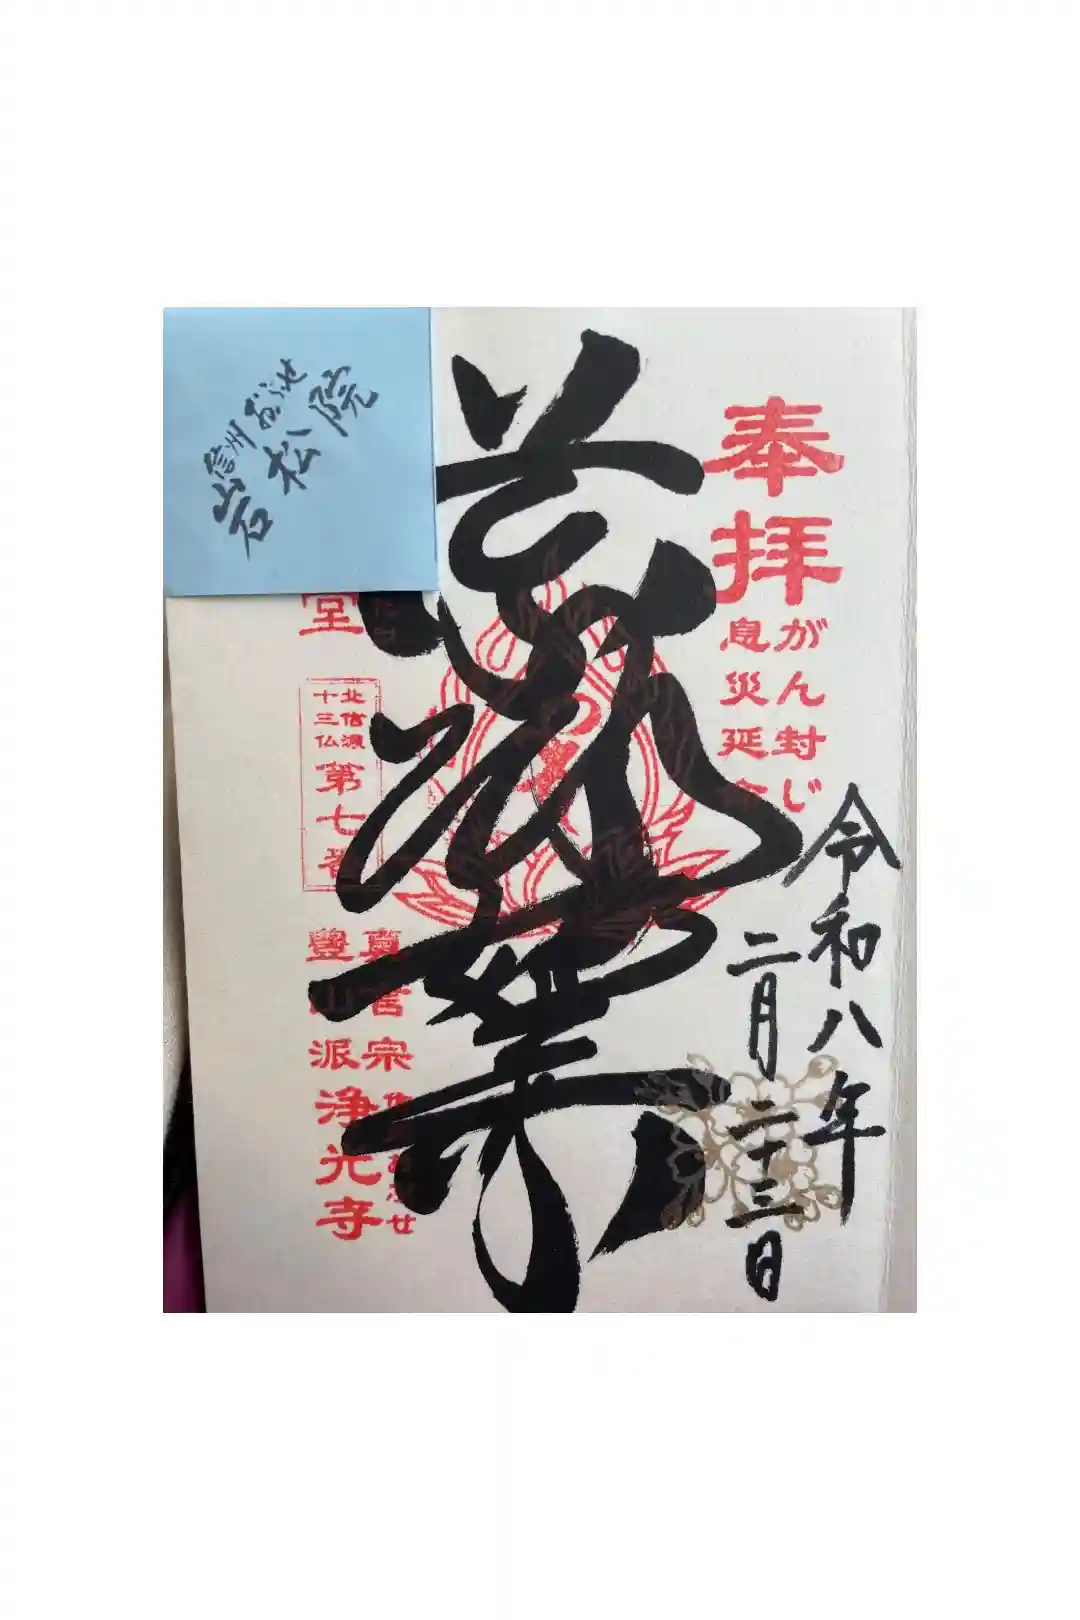 奉拝
がん封じ
息災延命
令和八年
二月二十三日
堂
北信濃
十三仏
第七番
真言宗
豊山派
浄光寺
信州おぶせ
岩松院